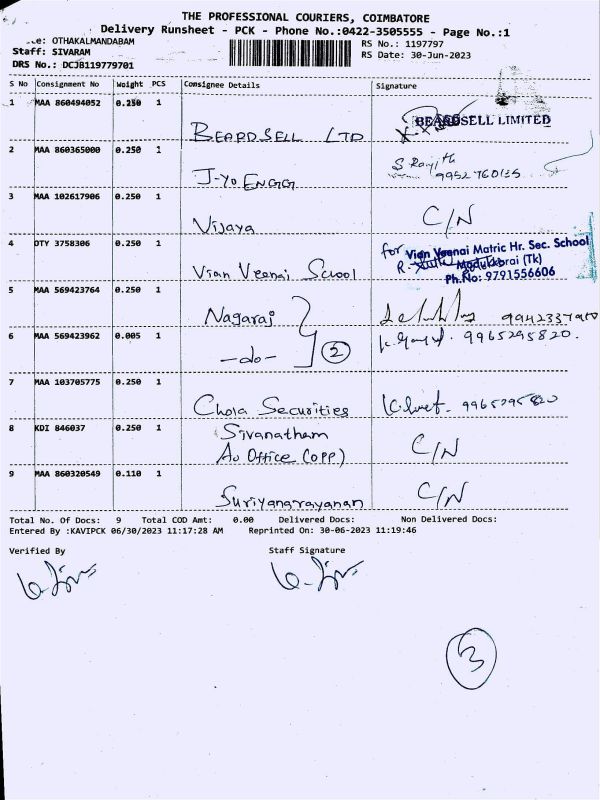 THE PROFESSIONAL COURIERS, COIMBATORE
Delivery Runsheet - PCK - Phone No.:0422-3505555 - Page No.:1
OTHAKALMANDABAM
RS No.: 1197797
Staff: SIVARAM
RS Date: 30-Jun-2023
DRS No.: DCJB119779701
S No Consignment No Weight PCS Consignee Details Signature
1 MAA 860494052 0.250 1
BEARDSELL LIMITED
BEARDSELL LTD
2 MAA 860365000 0.250 1
J-Yo Engg
3 MAA 102617906 0.250 1
Vijaya C/N
4 OTY 3758306 0.250 1
for Vian Veenai Matric Hr. Sec. School
Madukkarai (Tk)
Ph.No: 9791556606
Vian Veenai School
5 MAA 569423764 0.250 1
Nagaraj
6 MAA 569423962 0.005 1
-do- 2
9965295820.
7 MAA 103705775 0.250 1
Chola Securities
8 KDI 846037 0.250 1
Sivanatham
Au Office (OPP) C/N
9 MAA 860320549 0.110 1
Suriyanarayanan C/N
Total No. Of Docs: 9 Total COD Amt: 0.00 Delivered Docs: Non Delivered Docs:
Entered By :KAVIPCK 06/30/2023 11:17:28 AM Reprinted On: 30-06-2023 11:19:46
Verified By Staff Signature
3